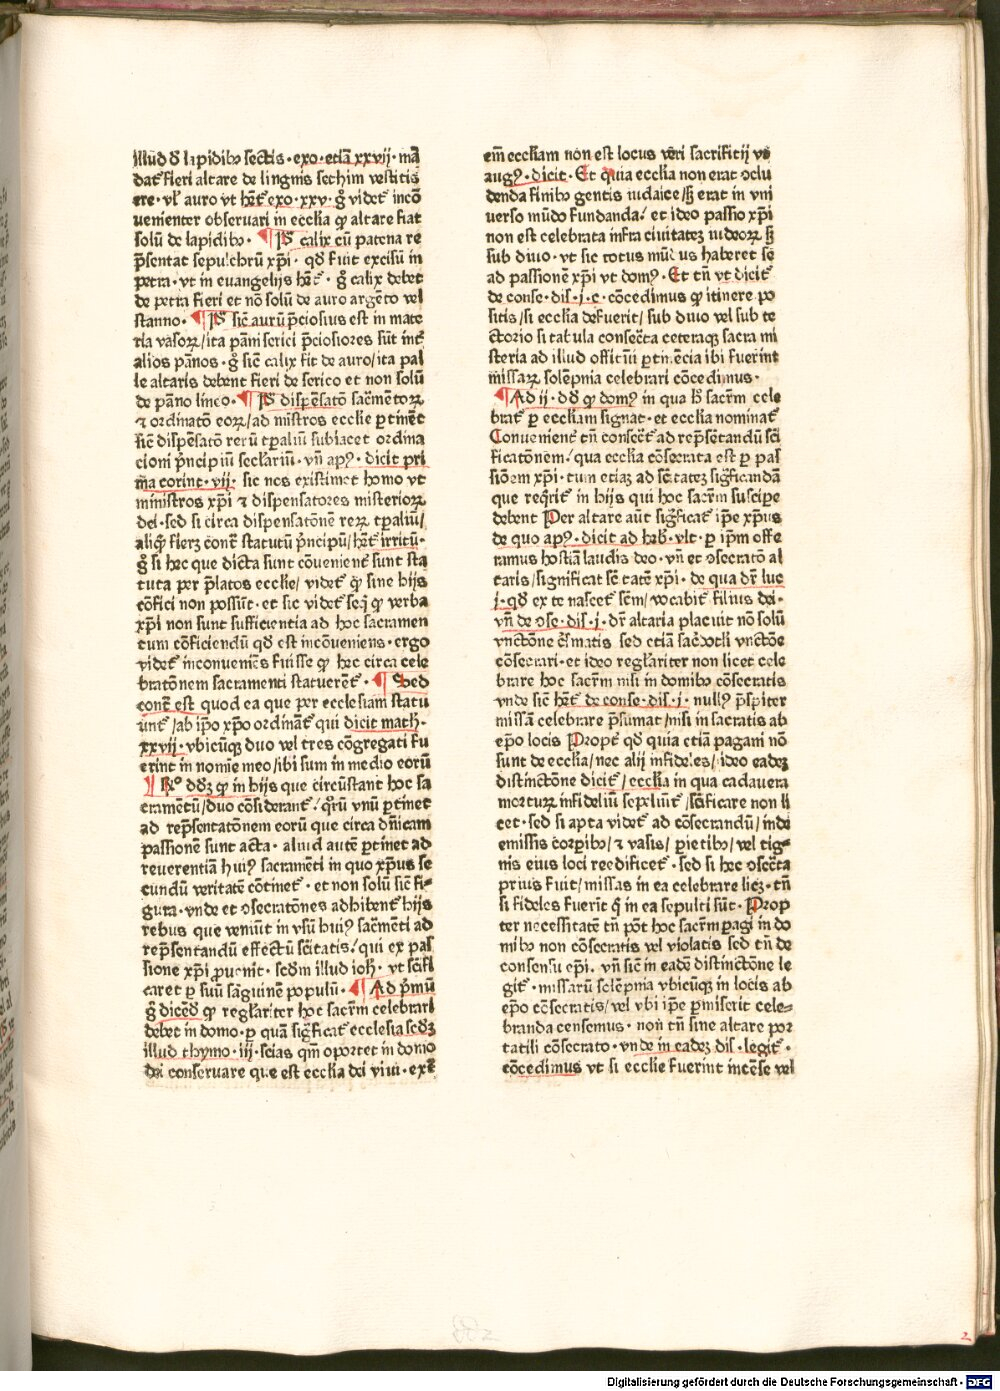 illud ꝺ lapidibꝰ sectis · exo · etiā xxvij · mā
dat᷑ fieri altare de lingnis sechim vestitis
ere · vl᷑ auro vt hēt᷑ exo · xxv · gͦ videt᷑ incō
uenienter obseruari in ecclīa ꝙ altare fiat
solū de lapidibꝰ · ¶ Pͣ calix cū patena re
p̄sentat sepulchrū xp̄i · qd̄ fuit excisū in
petra · vt in euangelijs hēt᷑ · gͦ calix debet
de petra fieri et nō solū de auro argēto vel
stanno · ¶ Pͣ sic̄ aurū p̄ciosius est in mate
ria vasoꝝ / ita pāni serici p̄ciosiores sūt int᷑
alios pānos · gͦ sic̄ calix fit de auro / ita pal
le altaris debent fieri de serico et non solū
de pāno lineo · ¶ Pͣ dispensatō sac̄mētoꝝ
⁊ ordinatō eoꝝ / ad mīstros ecclie ꝑtinet
sic̄ dispēsatō rerū tꝑaliū subiacet ordina
cioni p̄ncipiū sec̄lariū · vn̄ apꝰ · dicit pri
ma corint · vij · sic nos existimet homo vt
ministros xp̄i ⁊ dispensatores misterioꝝ
dei · sed si circa dispensatōnē reꝝ tꝑaliū /
aliqͥd fieꝫ contͣ statutū p̄ncipū / hēt᷑ irritū ·
gͦ si hec que dicta sunt cōuenient᷑ sunt sta
tuta per p̄latos ecclie / videt᷑ ꝙ sine hijs
cōfici non possūt · et sic videt᷑ seqͥ ꝙ verba
xp̄i non sunt sufficientia ad hoc sacramen
tum cōficiendū qd̄ est incōueniens · ergo
videt᷑ inconueniēs fuisse ꝙ hec circa cele
bratōnem sacramenti statuerēt᷑ · ¶ Sed
contͣ est quod ea que per ecclesiam statu
ūnt᷑ / ab ip̄o xp̄o ordināt᷑ qui dicit math ·
xxvij · vbicūqꝫ duo vel tres cōgregati fu
erint in nomīe meo / ibi sum in medio eorū
¶ Rͦ dd̄ꝫ ꝙ in hijs que circūstant hoc sa
cramētū / duo cōsiderant᷑ · qͦrū vnū ꝑtinet
ad rep̄sentatōnem eorū que circa dn̄icam
passionē sunt acta · aliud autē ꝑtinet ad
reuerentiā huiꝰ sacramēti in quo xp̄us se
cundū veritatē cōtinet᷑ · et non solū sic̄ fi-
gura · vnde et ↄsecratōnes adhibent᷑ hijs
rebus que veniūt in vsū huiꝰ sac̄mēti ad
rep̄sentandū effectū sc̄itatis · qui ex pas
sione xp̄i ꝓuenit · scd̄m illud ioh̄ · vt sc̄ifi
caret ꝑ suū sāguinē populū · ¶ Ad p̄mū
gͦ dicēdū ꝙ regl̄ariter hoc sacr̄m celebrari
debet in domo · ꝑ quā sigͣficat᷑ ecclesia scd̄ꝫ
illud thymo · iij · scias qm̄ oportet in domo
dei conseruare que est ecclīa dei viui · extͣ
em̄ eccliam non est locus veri sacrificij vt
augꝰ · dicit · Et quia ecclīa non erat ↄclu
denda finibꝰ gentis iudaice / sꝫ erat in vni
uerso mūdo fundanda · et ideo passio xp̄i
non est celebrata infra ciuitateꝫ iudeoꝝ sꝫ
sub diuo · vt sic totus mūdus haberet se
ad passionē xp̄i vt domꝰ · Et tn̄ vt dicit᷑
de conse · dis · j · c · cōcedimus ꝙ itinere po
sitis / si ecclīa defuerit / sub diuo vel sub te
ctorio si tabula consecta ceteraqꝫ sacra mi
steria ad illud officiū ꝑtinēcia ibi fuerint
missaꝝ solēpnia celebrari cōcedimus ·
¶ Ad ij · dd̄ ꝙ domꝰ in qua hͦ sacr̄m cele
brat᷑ ꝑ eccliam signat᷑ · et ecclīa nominat᷑
Conuenient᷑ tn̄ consect᷑ ad rep̄sētandū sc̄i
ficatōnem / qua ecclīa cōsecrata est ꝑ pas
siōem xp̄i · tum etiaꝫ ad sc̄itateꝫ sigͣficandā
que reqͥrit᷑ in hijs qui hoc sacr̄m suscipe
debent Per altare aūt sigͣficat᷑ ip̄e xp̄us
de quo apꝰ · dicit ad heb̄ · vlt · ꝑ ip̄m offe
ramus hostiā laudis deo · vn̄ et ↄsecratō al
taris / significat sc̄itatē xp̄i · de qua dr̄ luc
j · qd̄ ex te nascet᷑ sc̄m / vocabit᷑ filius dei ·
vn̄ de ↄse · dis · j · dr̄ altaria placuit nō solū
vnctōne c͛smatis sed etiā sac̄dotli vnctōne
cōsecrari · et ideo regl̄ariter non licet cele
brare hoc sacr̄m nisi in domibꝰ cōsecratis
vnde sic̄ hēt᷑ de conse · dis · j · nullꝰ p̄spiter
missā celebrare p̄sumat / nisi in sacratis ab
ep̄o locis Propt᷑ qd̄ quia etiā pagani nō
sunt de ecclīa / nec alij infideles / ideo eadeꝫ
distinctōne dicit᷑ / ecclīa in qua cadauera
mortuꝝ infideliū sepeliūt᷑ / sc̄ificare non li
cet · sed si apta videt᷑ ad cōsecrandū / inde
emissis corꝑibꝰ / ⁊ vasis / ꝑietibꝰ / vel tig-
nis eius loci reedificet᷑ · sed si hec ↄsecta
prius fuit / missas in ea celebrare liceꝫ · tn̄
si fideles fuerit qͥ in ea sepulti sūt · Prop
ter necessitatē tn̄ pōt hoc sacr̄m ꝑagi in do
mibꝰ non cōsecratis vel violatis sed tn̄ de
consensu ep̄i · vn̄ sic̄ in eadē distinctōne le
git᷑ · missarū solēpnia vbicūqꝫ in locis ab
ep̄o cōsecratis / vel vbi ip̄e ꝑmiserit cele-
branda censemus · non tn̄ sine altare por
tatili cōsecrato · vnde in eadeꝫ dis · legit᷑ ·
cōcedimus vt si ecclie fuerint incēse vel
Digitalisierung gefördert durch die Deutsche Forschungsgemeinschaft - DFG